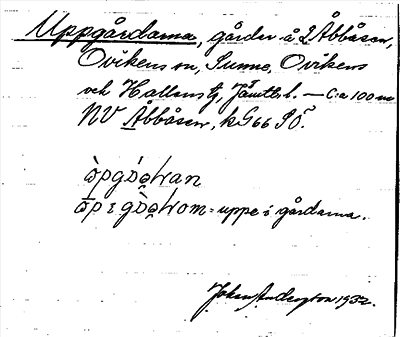 Uppgårdarna, gårdar å 2 Åbbåsen,
Ovikens sn, Sunne, Ovikens
och Hallens tg, Jämtls l. — C:a 100 m
NV Åbbåsen, k G 66 SO.
uppe i gårdarna.
Johan Anderzton 1932.